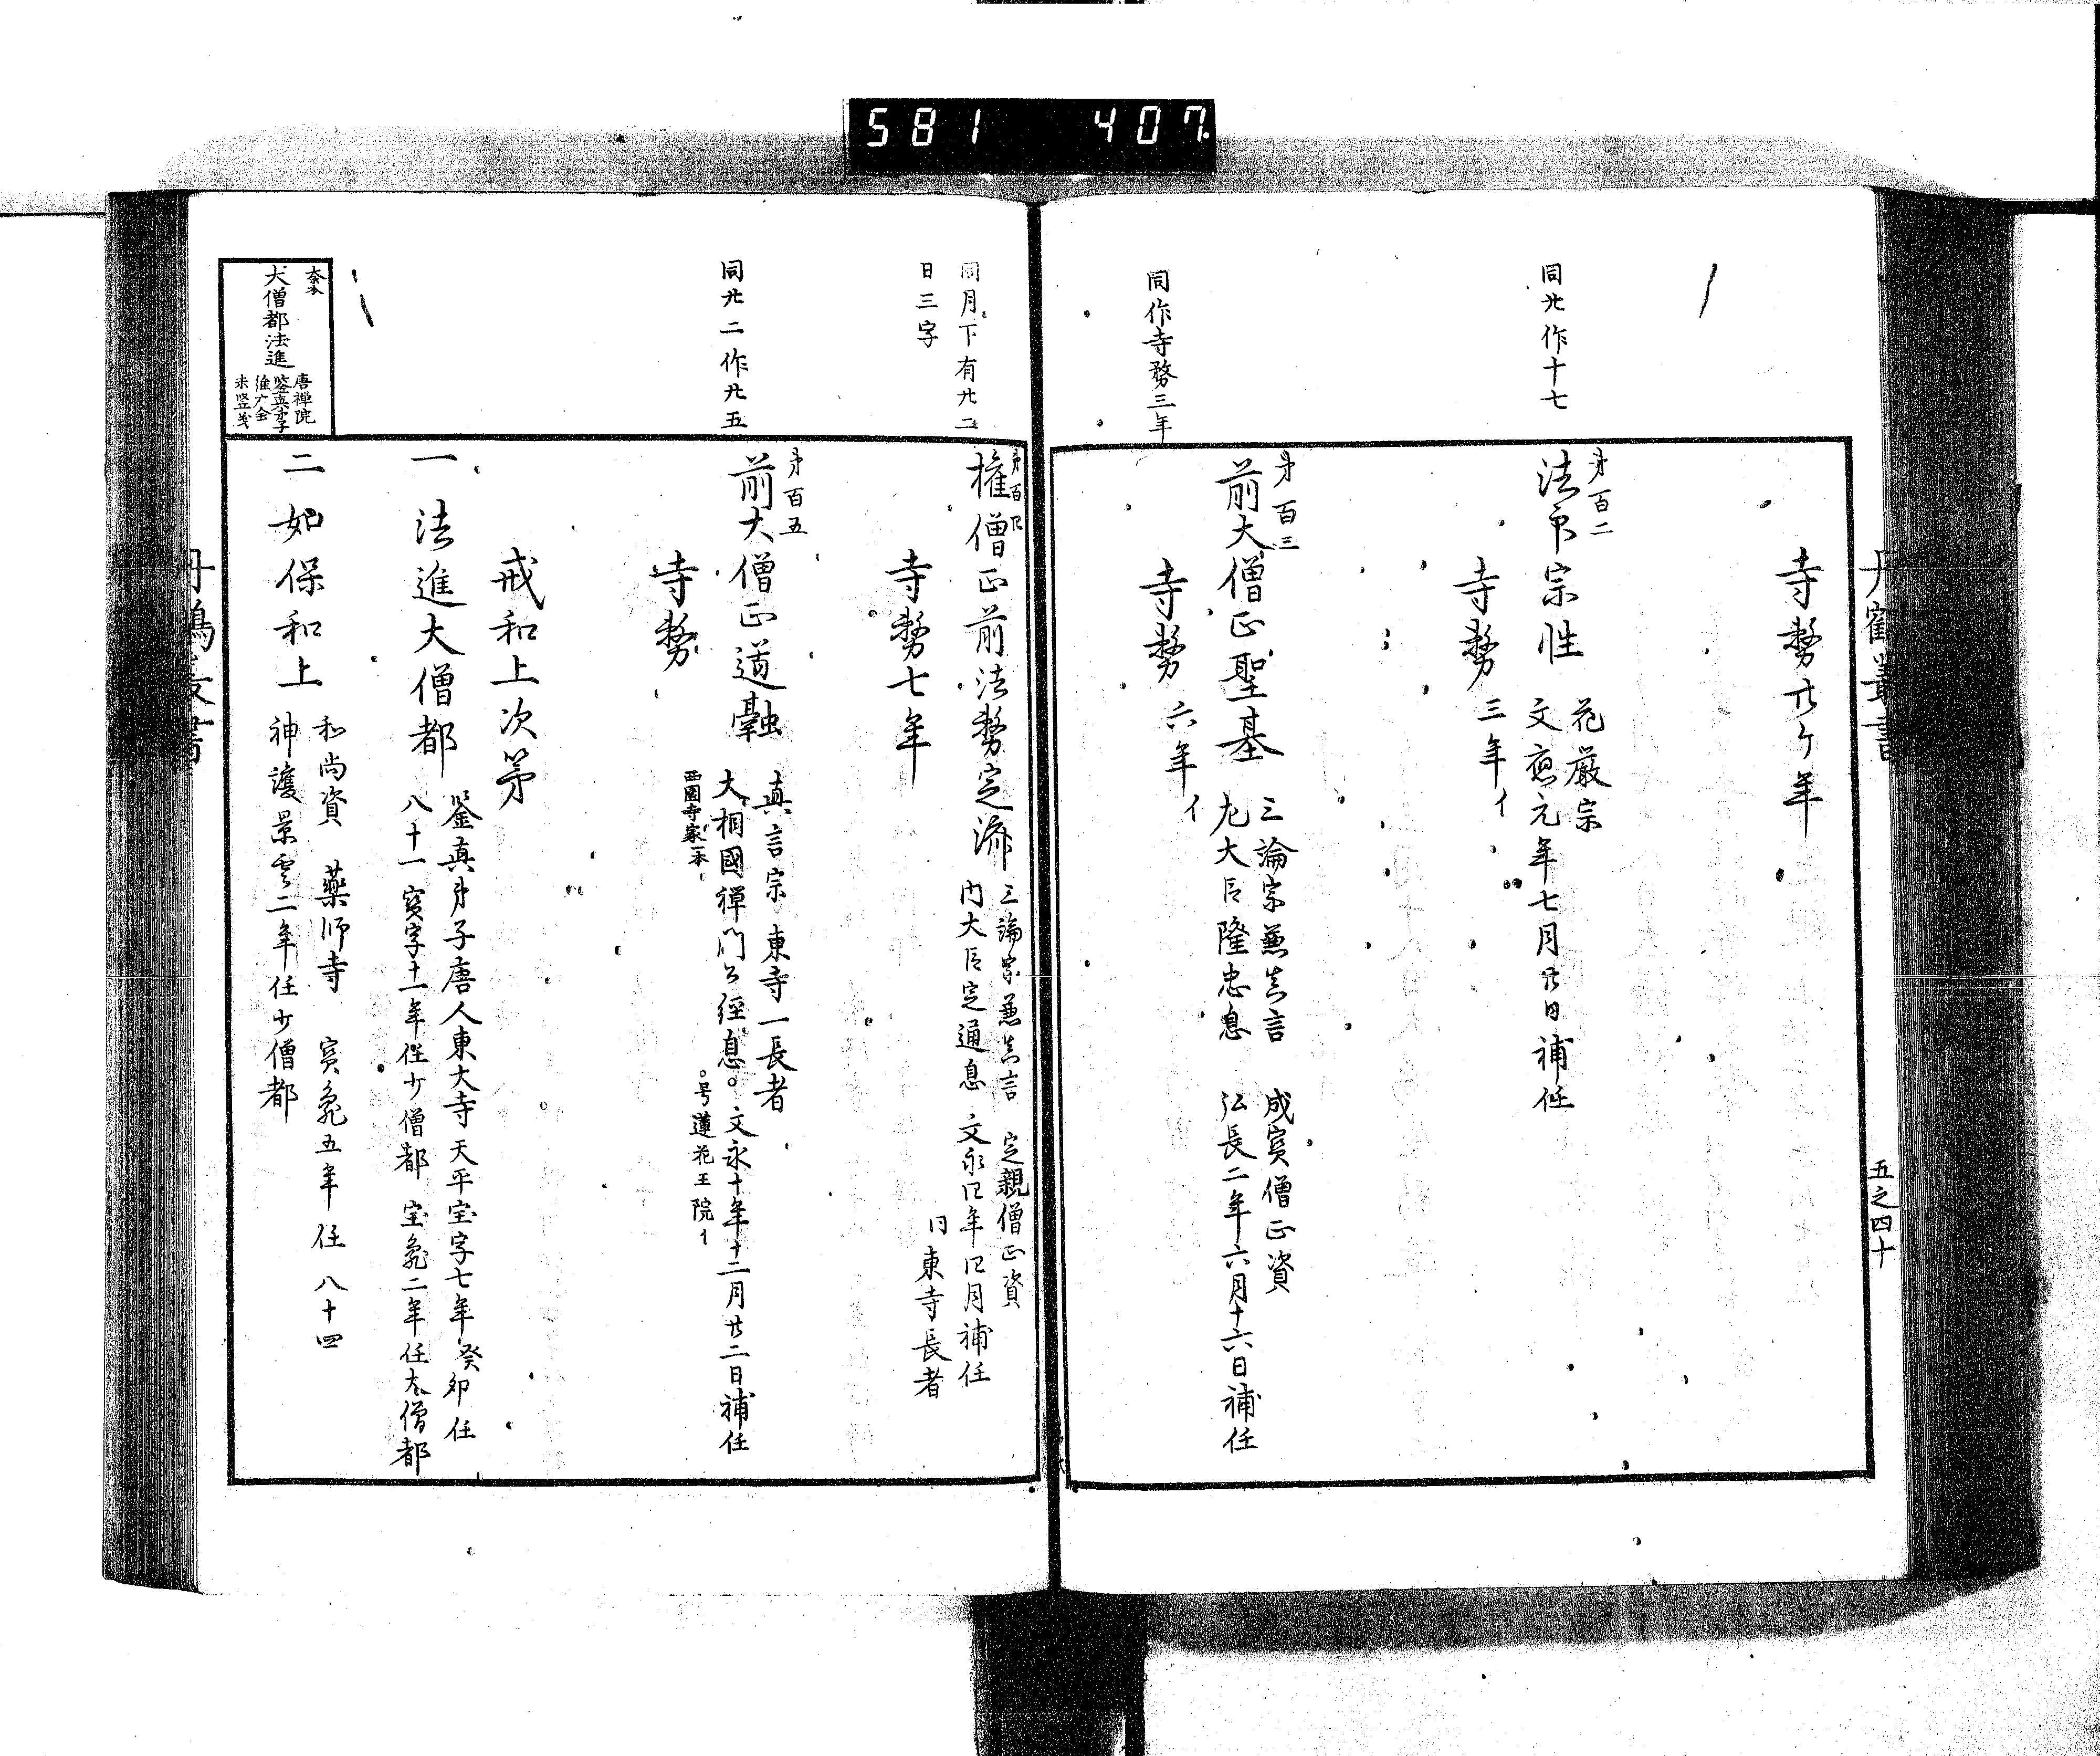 581 407
丹鶴叢書
五之四十
寺務廿ケ年
同廿作十七
第百二
法印宗性
花厳宗
文應元年七月廿日補任
寺務三年イ
第百三
前大僧正聖基
三論宗兼真言 成宝僧正資
左大臣隆忠息 弘長二年六月十六日補任
同作寺務三年
寺務六年イ
同月下有廿二
日三字
第百四
権僧正前法務定済
三論宗兼真言 定親僧正資
内大臣定通息 文永四年四月補任
同東寺長者
寺務七年
同廿二作廿五
第百五
前大僧正道融
真言宗東寺一長者
大相國禅門公經息。文永十年十二月廿二日補任
西園寺家一本
。号蓮花王院イ
寺務
戒和上次第
一法進大僧都
鑒真弟子唐人東大寺天平宝字七年癸卯任
八十一宝字十一年任少僧都宝亀二年任大僧都
奈本
大僧都法進
唐禅院
鑒真弟子
二如保和上
和尚資 薬師寺 宝亀五年任 八十四
神護景雲二年任少僧都